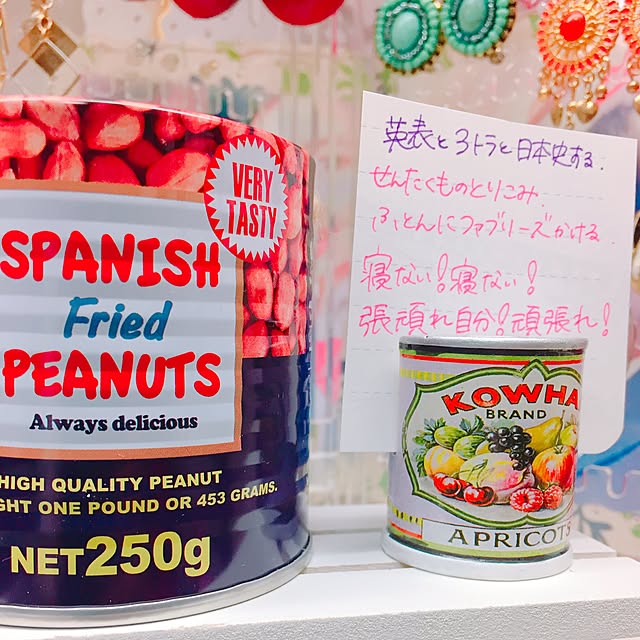 VERY
TASTY
SPANISH
Fried
PEANUTS
Always delicious
HIGH QUALITY PEANUT
ONE POUND OR 453 GRAMS.
NET250g
英表と3トラと日本史する.
せんたくものとりこみ.
ふとんにファブリーズかける.
寝ない!寝ない!
張頑れ自分!頑張れ!
KOWHA
BRAND
APRICOTS